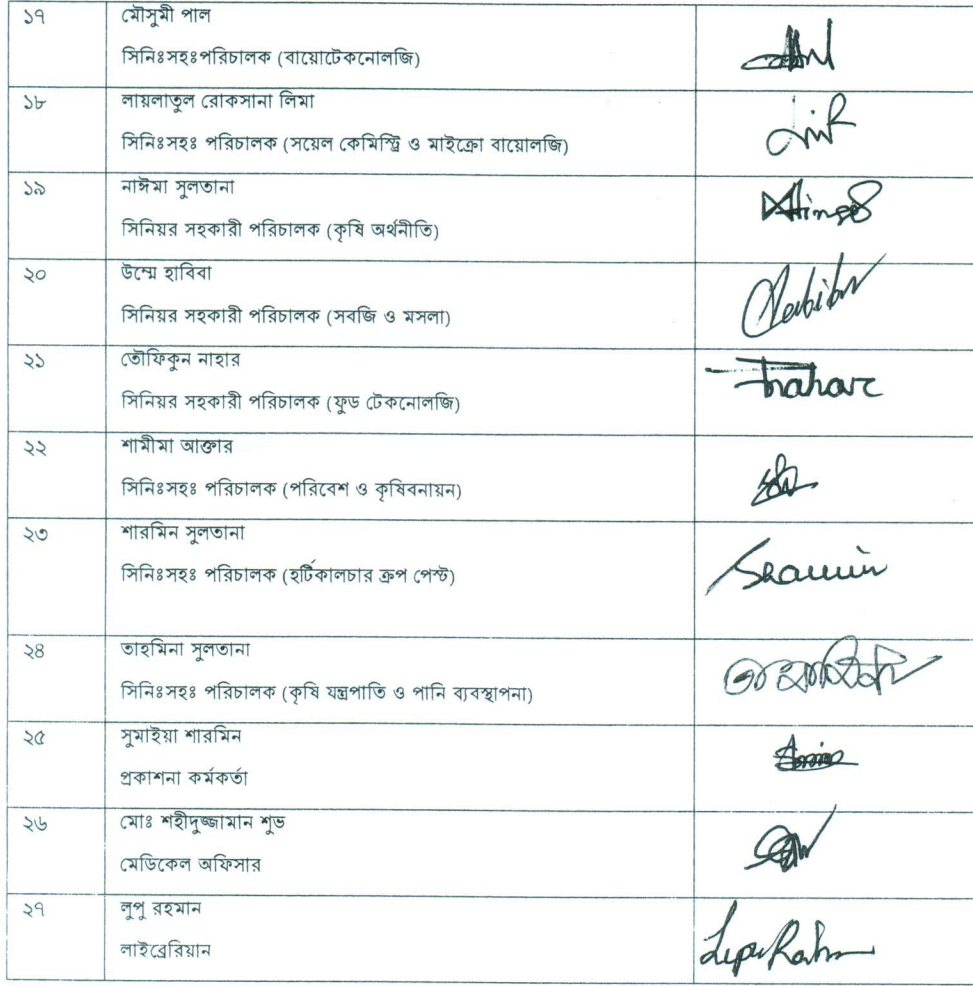 ১৭ মৌসুমী পাল
সিনিঃসহঃপরিচালক (বায়োটেকনোলজি)
১৮ লায়লাতুল রোকসানা লিমা
সিনিঃসহঃ পরিচালক (সয়েল কেমিস্ট্রি ও মাইক্রো বায়োলজি)
১৯ নাঈমা সুলতানা
সিনিয়র সহকারী পরিচালক (কৃষি অর্থনীতি)
২০ উম্মে হাবিবা
সিনিয়র সহকারী পরিচালক (সবজি ও মসলা)
Habiba
২১ তৌফিকুন নাহার
সিনিয়র সহকারী পরিচালক (ফুড টেকনোলজি)
Tnahar
২২ শামীমা আক্তার
সিনিঃসহঃ পরিচালক (পরিবেশ ও কৃষিবনায়ন)
২৩ শারমিন সুলতানা
সিনিঃসহঃ পরিচালক (হর্টিকালচার ক্রপ পেস্ট)
Sharmin
২৪ তাহমিনা সুলতানা
সিনিঃসহঃ পরিচালক (কৃষি যন্ত্রপাতি ও পানি ব্যবস্থাপনা)
২৫ সুমাইয়া শারমিন
প্রকাশনা কর্মকর্তা
২৬ মোঃ শহীদুজ্জামান শুভ
মেডিকেল অফিসার
২৭ লুপু রহমান
লাইব্রেরিয়ান